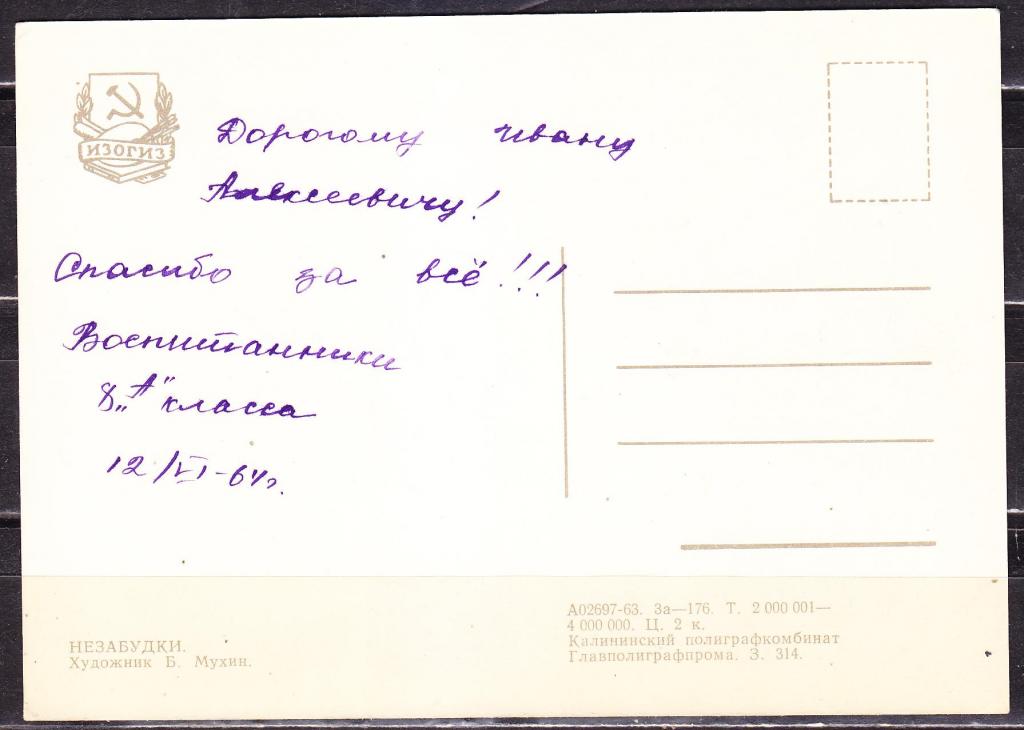 ИЗОГИЗ
Дорогому Ивану
Алексеевичу!
Спасибо за всё!!!
Воспитанники
8 „А" класса
12/VI-64г.
НЕЗАБУДКИ.
Художник Б. Мухин.
А02697-63. За—176. Т. 2 000 001—
4 000 000. Ц. 2 к.
Калининский полиграфкомбинат
Главполиграфпрома. З. 314.